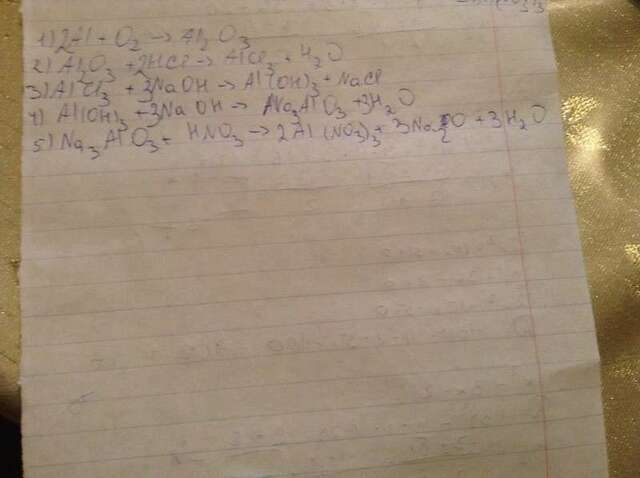 1) 2Al + O2 → Al2O3
2) Al2O3 + 2HCl → AlCl3 + H2O
3) AlCl3 + 3NaOH → Al(OH)3 + NaCl
4) Al(OH)3 + 3NaOH → Na3AlO3 + 3H2O
5) Na3AlO3 + HNO3 → 2Al(NO3)3 + 3Na2O + 3H2O